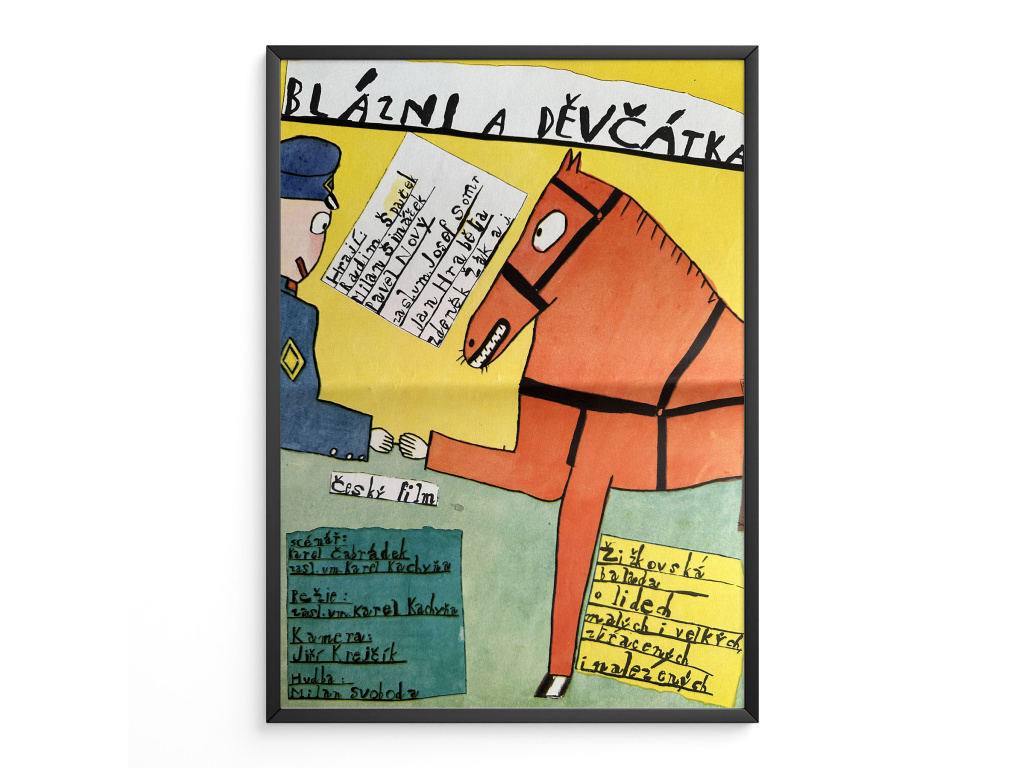 BLÁZNI A DĚVČÁTKA
Hrají:
Radim Špaček
Milan Šimáček
Pavel Nový
zasl.um. Josef Somr
Jan Hraběta
Zdeněk Žák aj.
Český film
scénář:
Karel Čabrádek
zasl.um. Karel Kachyňa
Režie:
zasl.um. Karel Kachyňa
Kamera:
Jiří Krejčík
Hudba:
Milan Svoboda
Žižkovská
balada
o lidech
malých i velkých,
ztracených
i nalezených